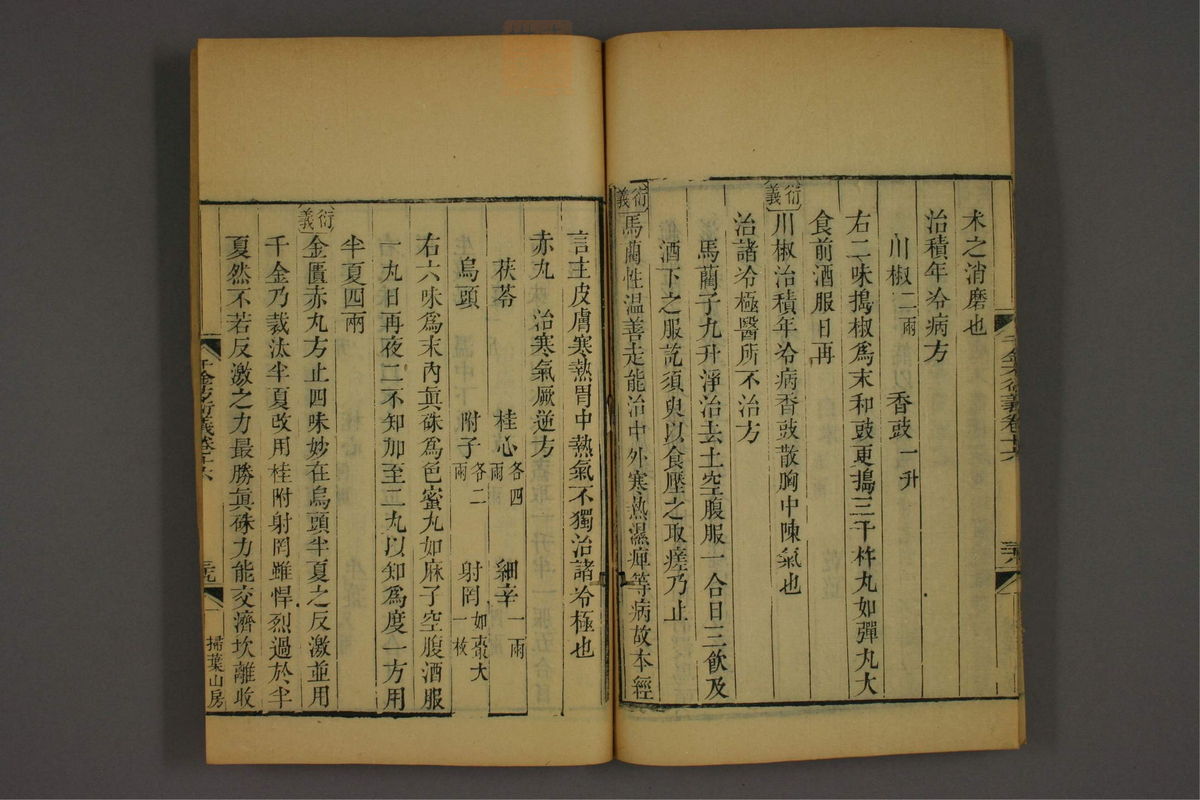 朮之消磨也
治積年冷病方
川椒二兩　香豉一升
右二味搗椒爲末和豉更搗三千杵丸如彈丸大
食前酒服日再
衍義
川椒治積年冷病香豉散胸中陳氣也
治諸冷極醫所不治方
馬藺子九升淨治去土空腹服一合日三飲及
酒下之服訖須臾以食壓之取瘥乃止
衍義
馬藺性温善走能治中外寒熱濕痺等病故本經
千金方衍義卷十六
三十八
言主皮膚寒熱胃中熱氣不獨治諸冷極也
赤丸　治寒氣厥逆方
茯苓　桂心各四兩　細辛一兩
烏頭　附子各二兩　射罔如棗大一枚
右六味爲末內眞硃爲色蜜丸如麻子空腹酒服
一丸日再夜一不知加至二丸以知爲度一方用
半夏四兩
衍義
金匱赤丸方止四味妙在烏頭半夏之反激並用
千金乃裁汰半夏改用桂附射罔雖悍烈過於半
夏然不若反激之力最勝眞硃力能交濟坎離收
千金方衍義卷十六
三十九
掃葉山房